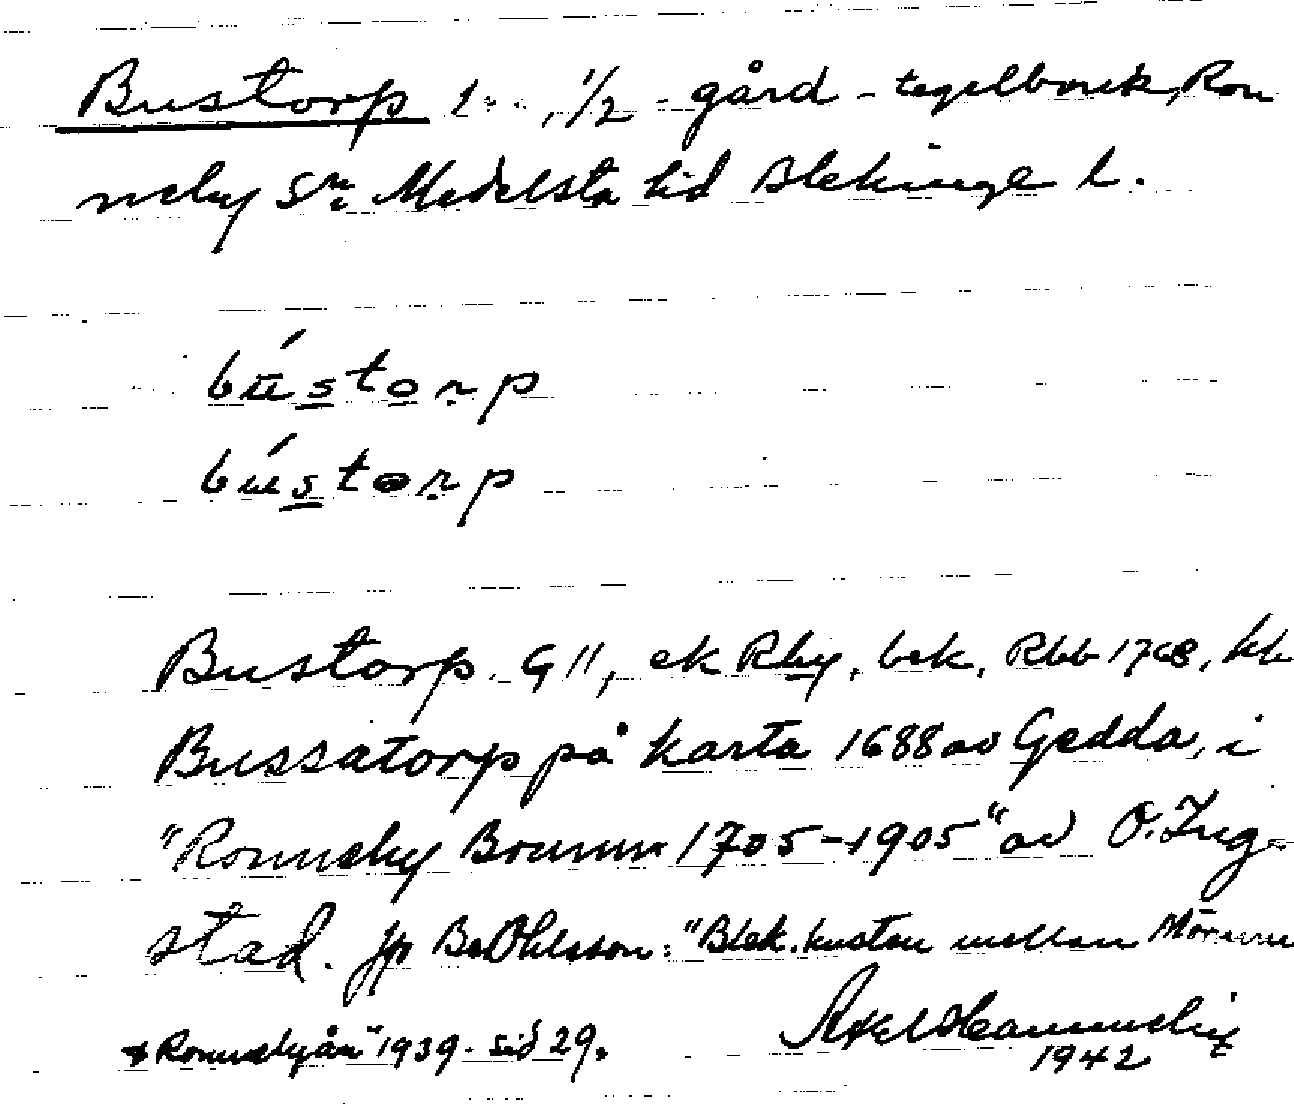 Bustorp 1/2 gård - tegelbruk, Ron
neby Sn. Medelsta hd Blekinge l.
bústorp
bústorp
Bustorp. G 11, ek Rby, bek, Rbb 1768, kk
Bussatorp på karta 1688 av Gedda, i
"Ronneby Brunn 1705-1905" av O. Ing-
stad. Jp Bs Ohlsson: "Blek. kusten mellan Mörrum
& Ronnebyån" 1939. sid 29.
Axel
1942